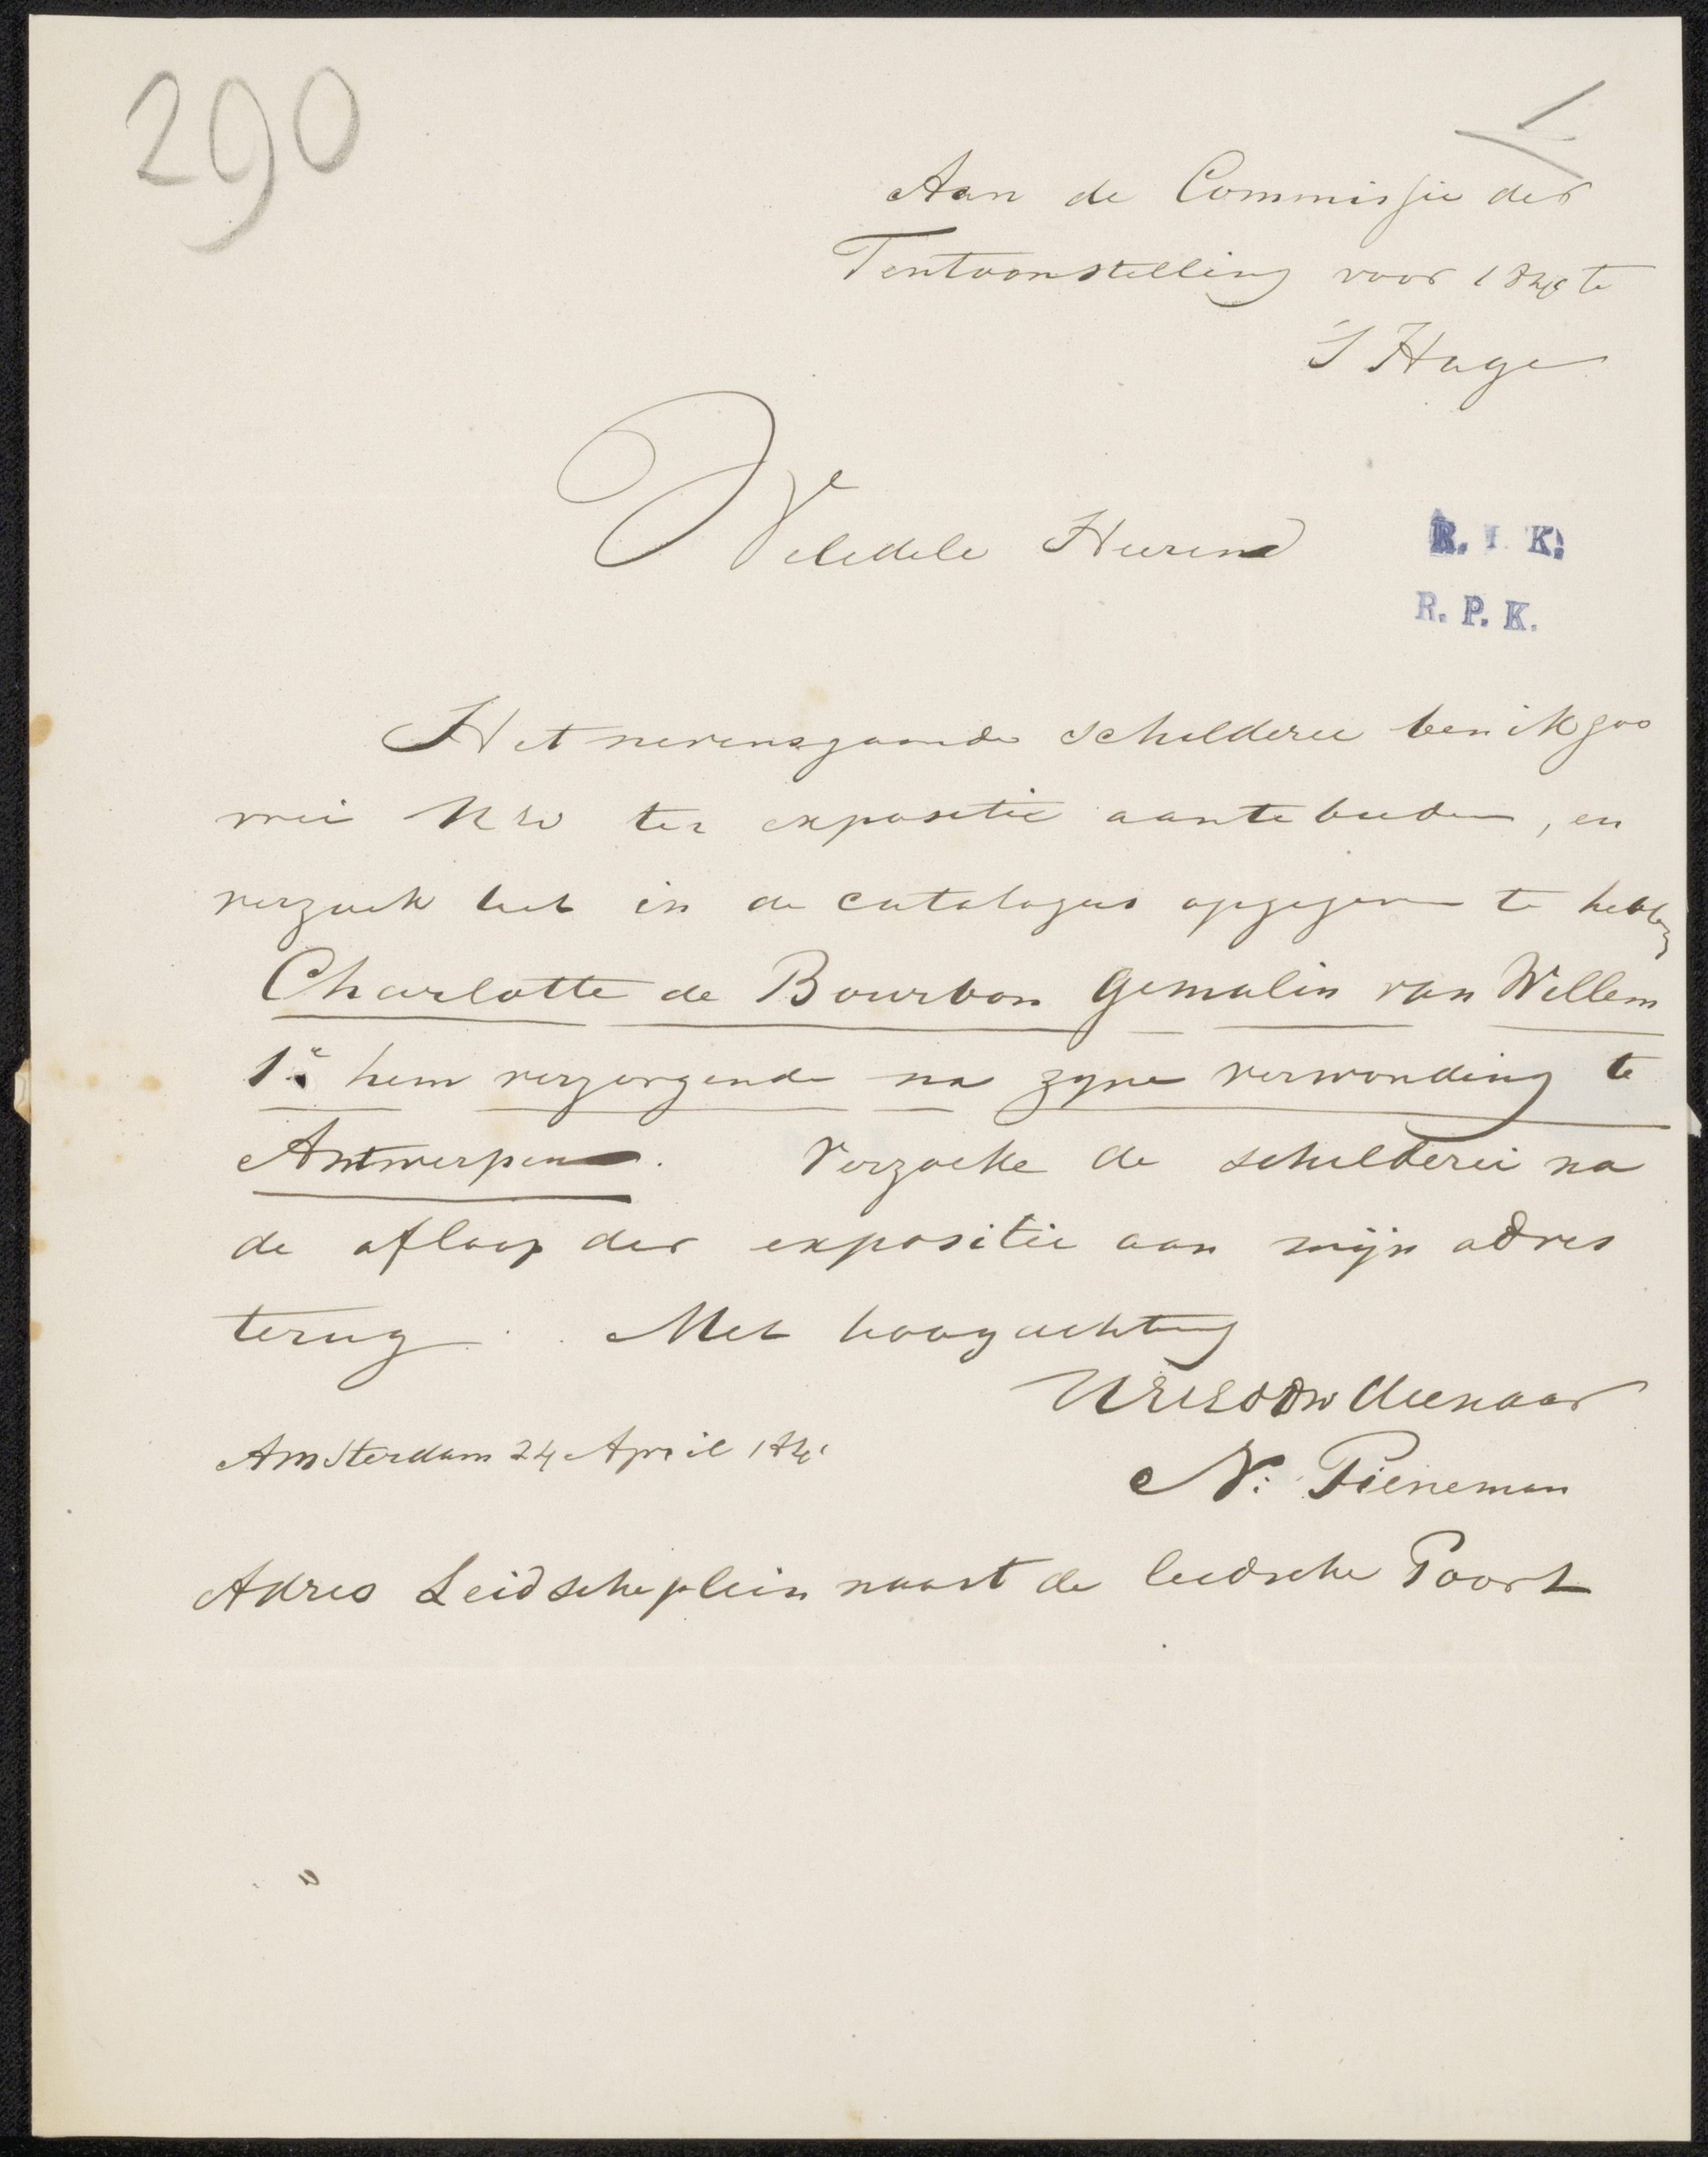 290
Aan de Commissie der
Tentoonstelling voor te
'S Hage
Weledele Heeren
R. K.
R. P. K.
Het nevensgaande schilderee ben ik zoo
vrei ter expositie aante bieden, en
verzoek het in de catalogus opgegeven te hebben
Charlotte de Bourbon gemalin van Willem
1e hem verzorgende na zyne verwonding te
Antwerpen. Verzoeke de schilderei na
de afloop der expositie aan mijn adres
terug. Met hoogachting
dienaar
Amsterdam 24 April
N: Pieneman
Adres Leidscheplein naast de leidsche Poort